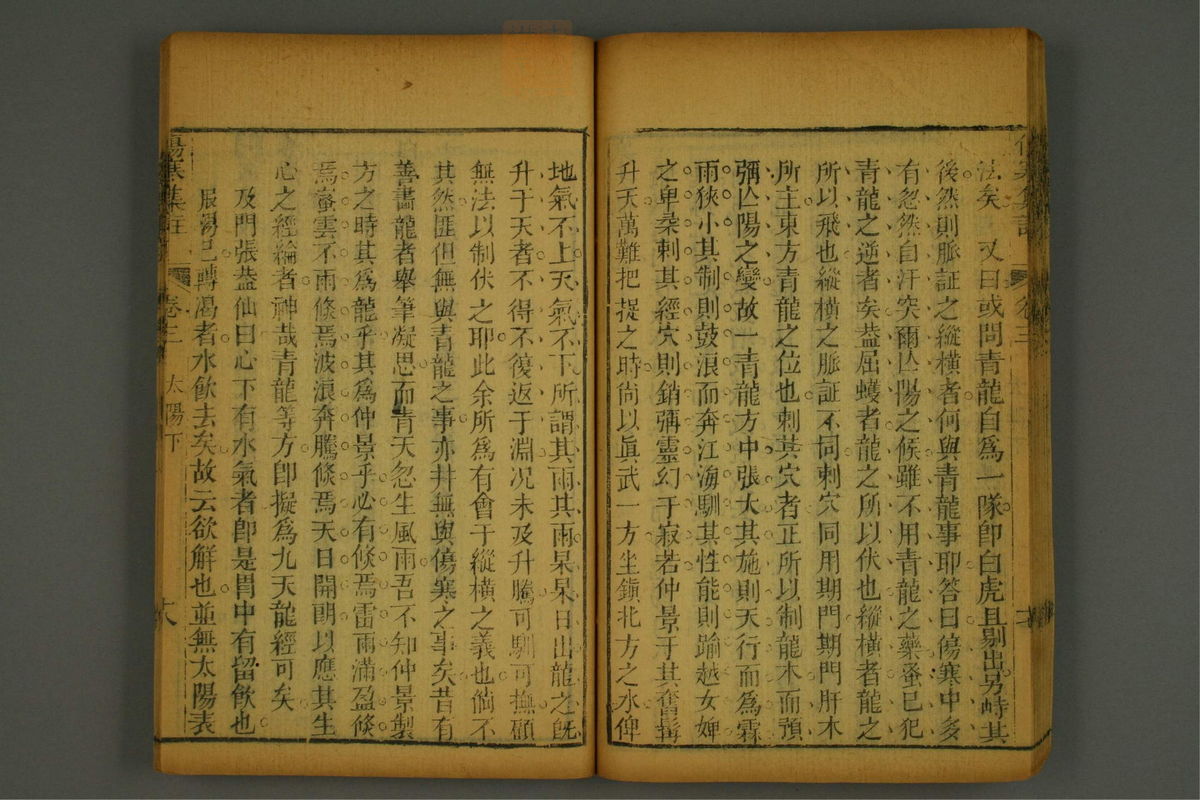 法矣　又曰或問青龍自爲一隊卽白虎且剔出另峙其
後然則脈証之縱橫者何與青龍事耶答曰傷寒中多
有忽然自汗突爾亾陽之候雖不用青龍之藥蚤已犯
青龍之逆者矣葢屈蠖者龍之所以伏也縱橫者龍之
所以飛也縱橫之脈証不同刺穴同用期門期門肝木
所主東方青龍之位也刺其穴者正所以制龍木而預
彌亾陽之變故一青龍方中張大其施則天行而爲霖
雨狹小其制則鼓浪而奔江海馴其性能則踰越女婢
之卑桑刺其經穴則銷彌靈幻于寂若仲景于其奮髯
升天萬難把捉之時尙以眞武一方坐鎭北方之水俾
地氣不上天氣不下所謂其雨其雨杲杲日出龍之旣
升于天者不得不復返于淵况未及升騰可馴可撫顧
無法以制伏之耶此余所爲有會于縱橫之義也倘不
其然匪但無與青龍之事亦幷無與傷寒之事矣昔有
善畵龍者舉筆凝思而青天忽生風雨吾不知仲景製
方之時其爲龍乎其爲仲景乎必有倏焉雷雨滿盈倏
焉蜜雲不雨倏焉波浪奔騰倏焉天日開朗以應其生
心之經綸者神哉青龍等方卽擬爲九天龍經可矣
及門張葢仙曰心下有水氣者卽是胃中有留飲也
服湯已轉渴者水飲去矣故云欲解也並無太陽表
傷寒集註
卷三
太陽下